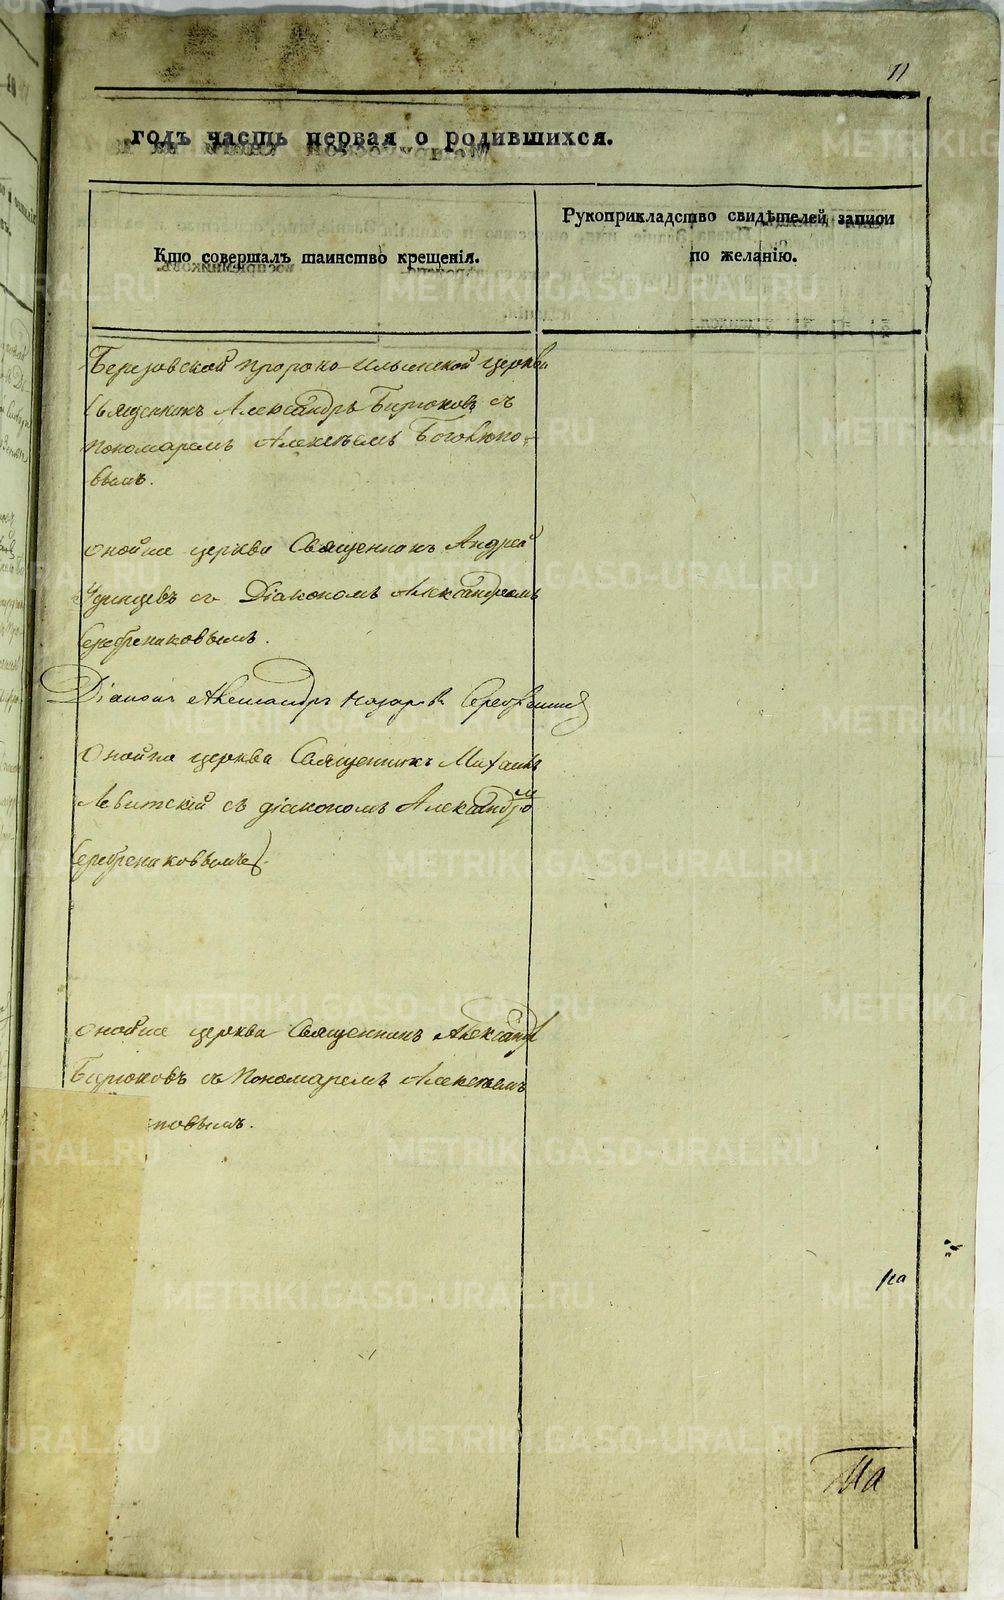 11
годъ часть первая о родившихся.
Кто совершалъ таинство крещенія.
Рукоприкладство свидѣтелей записи
по желанію.
Березовской пророко-ильинской церкви
Священникъ Александръ Бирюковъ съ
пономаремъ Алексѣемъ
вымъ.
онойже церкви Священникъ Андрей
Удинцевъ съ Діакономъ Александромъ
Серебрениковымъ.
Діаконъ Александръ Серебрениковъ
онойже церкви Священникъ Михаилъ
Левитскій съ діакономъ Александромъ
Серебрениковымъ.
онойже церкви Священникъ Александръ
Бирюковъ съ Пономаремъ Алексѣемъ
повымъ.
METRIKI.GASO-URAL.RU